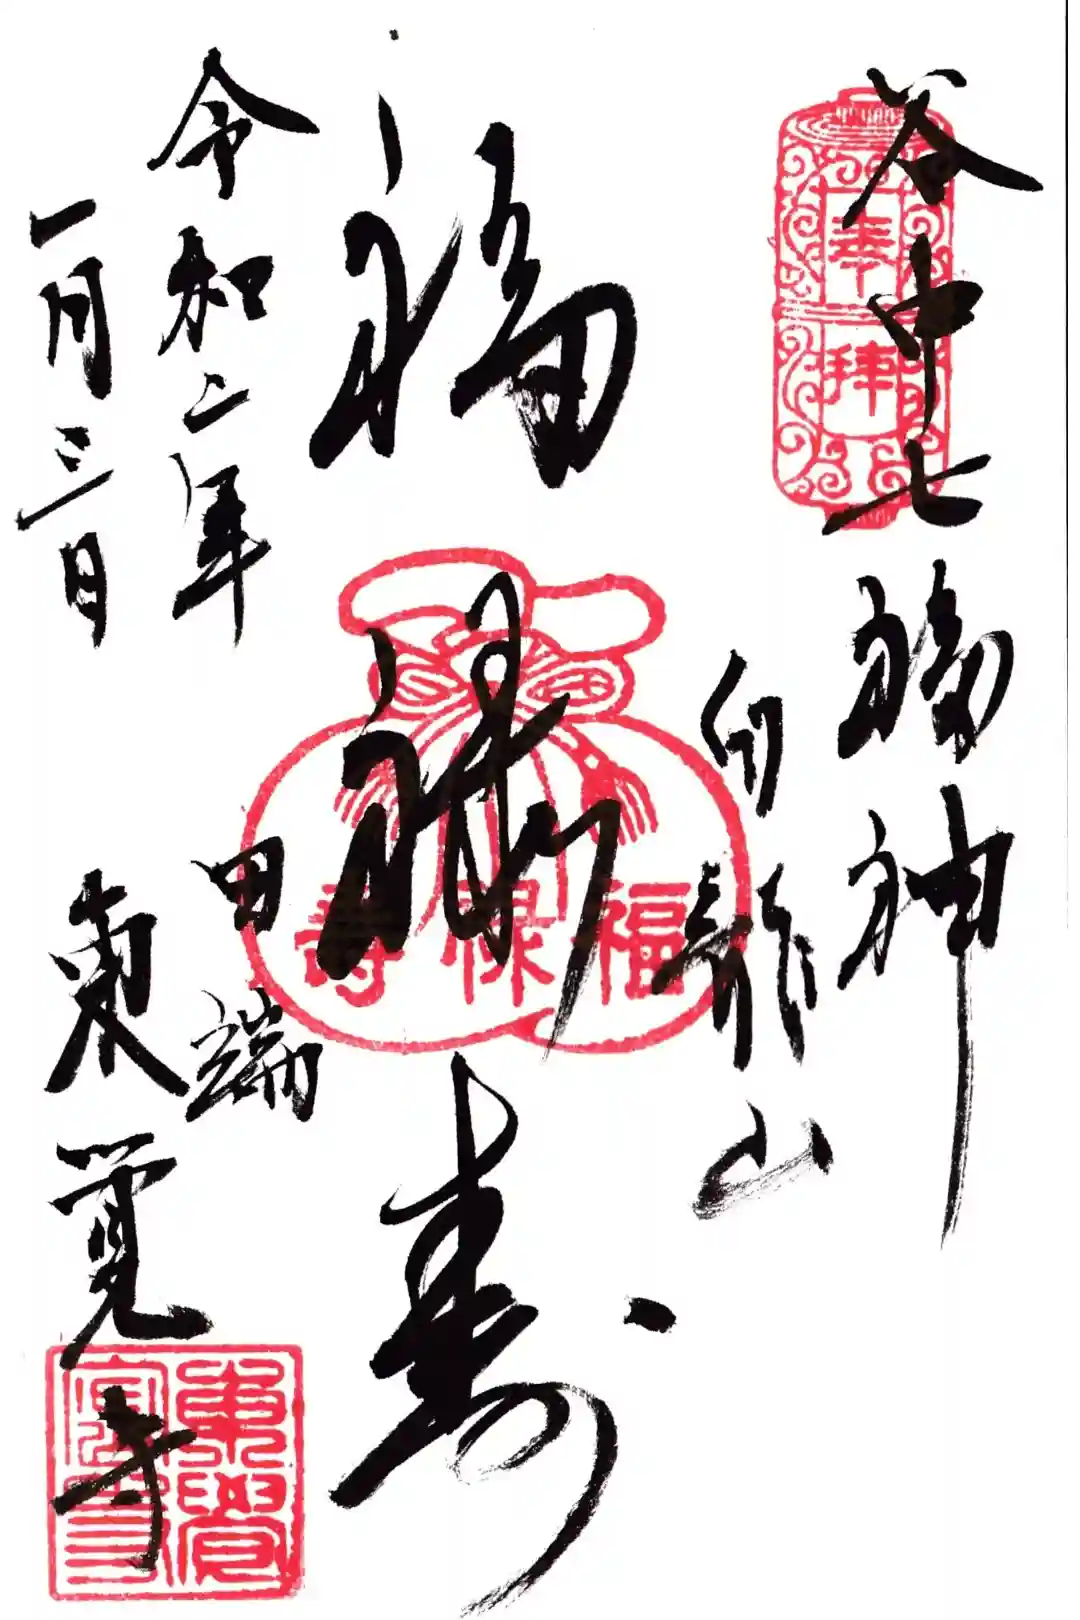 谷中七福神
奉拝
白龍山
福禄寿
福禄壽
令和二年
一月三日
田端
東覚寺
東覺